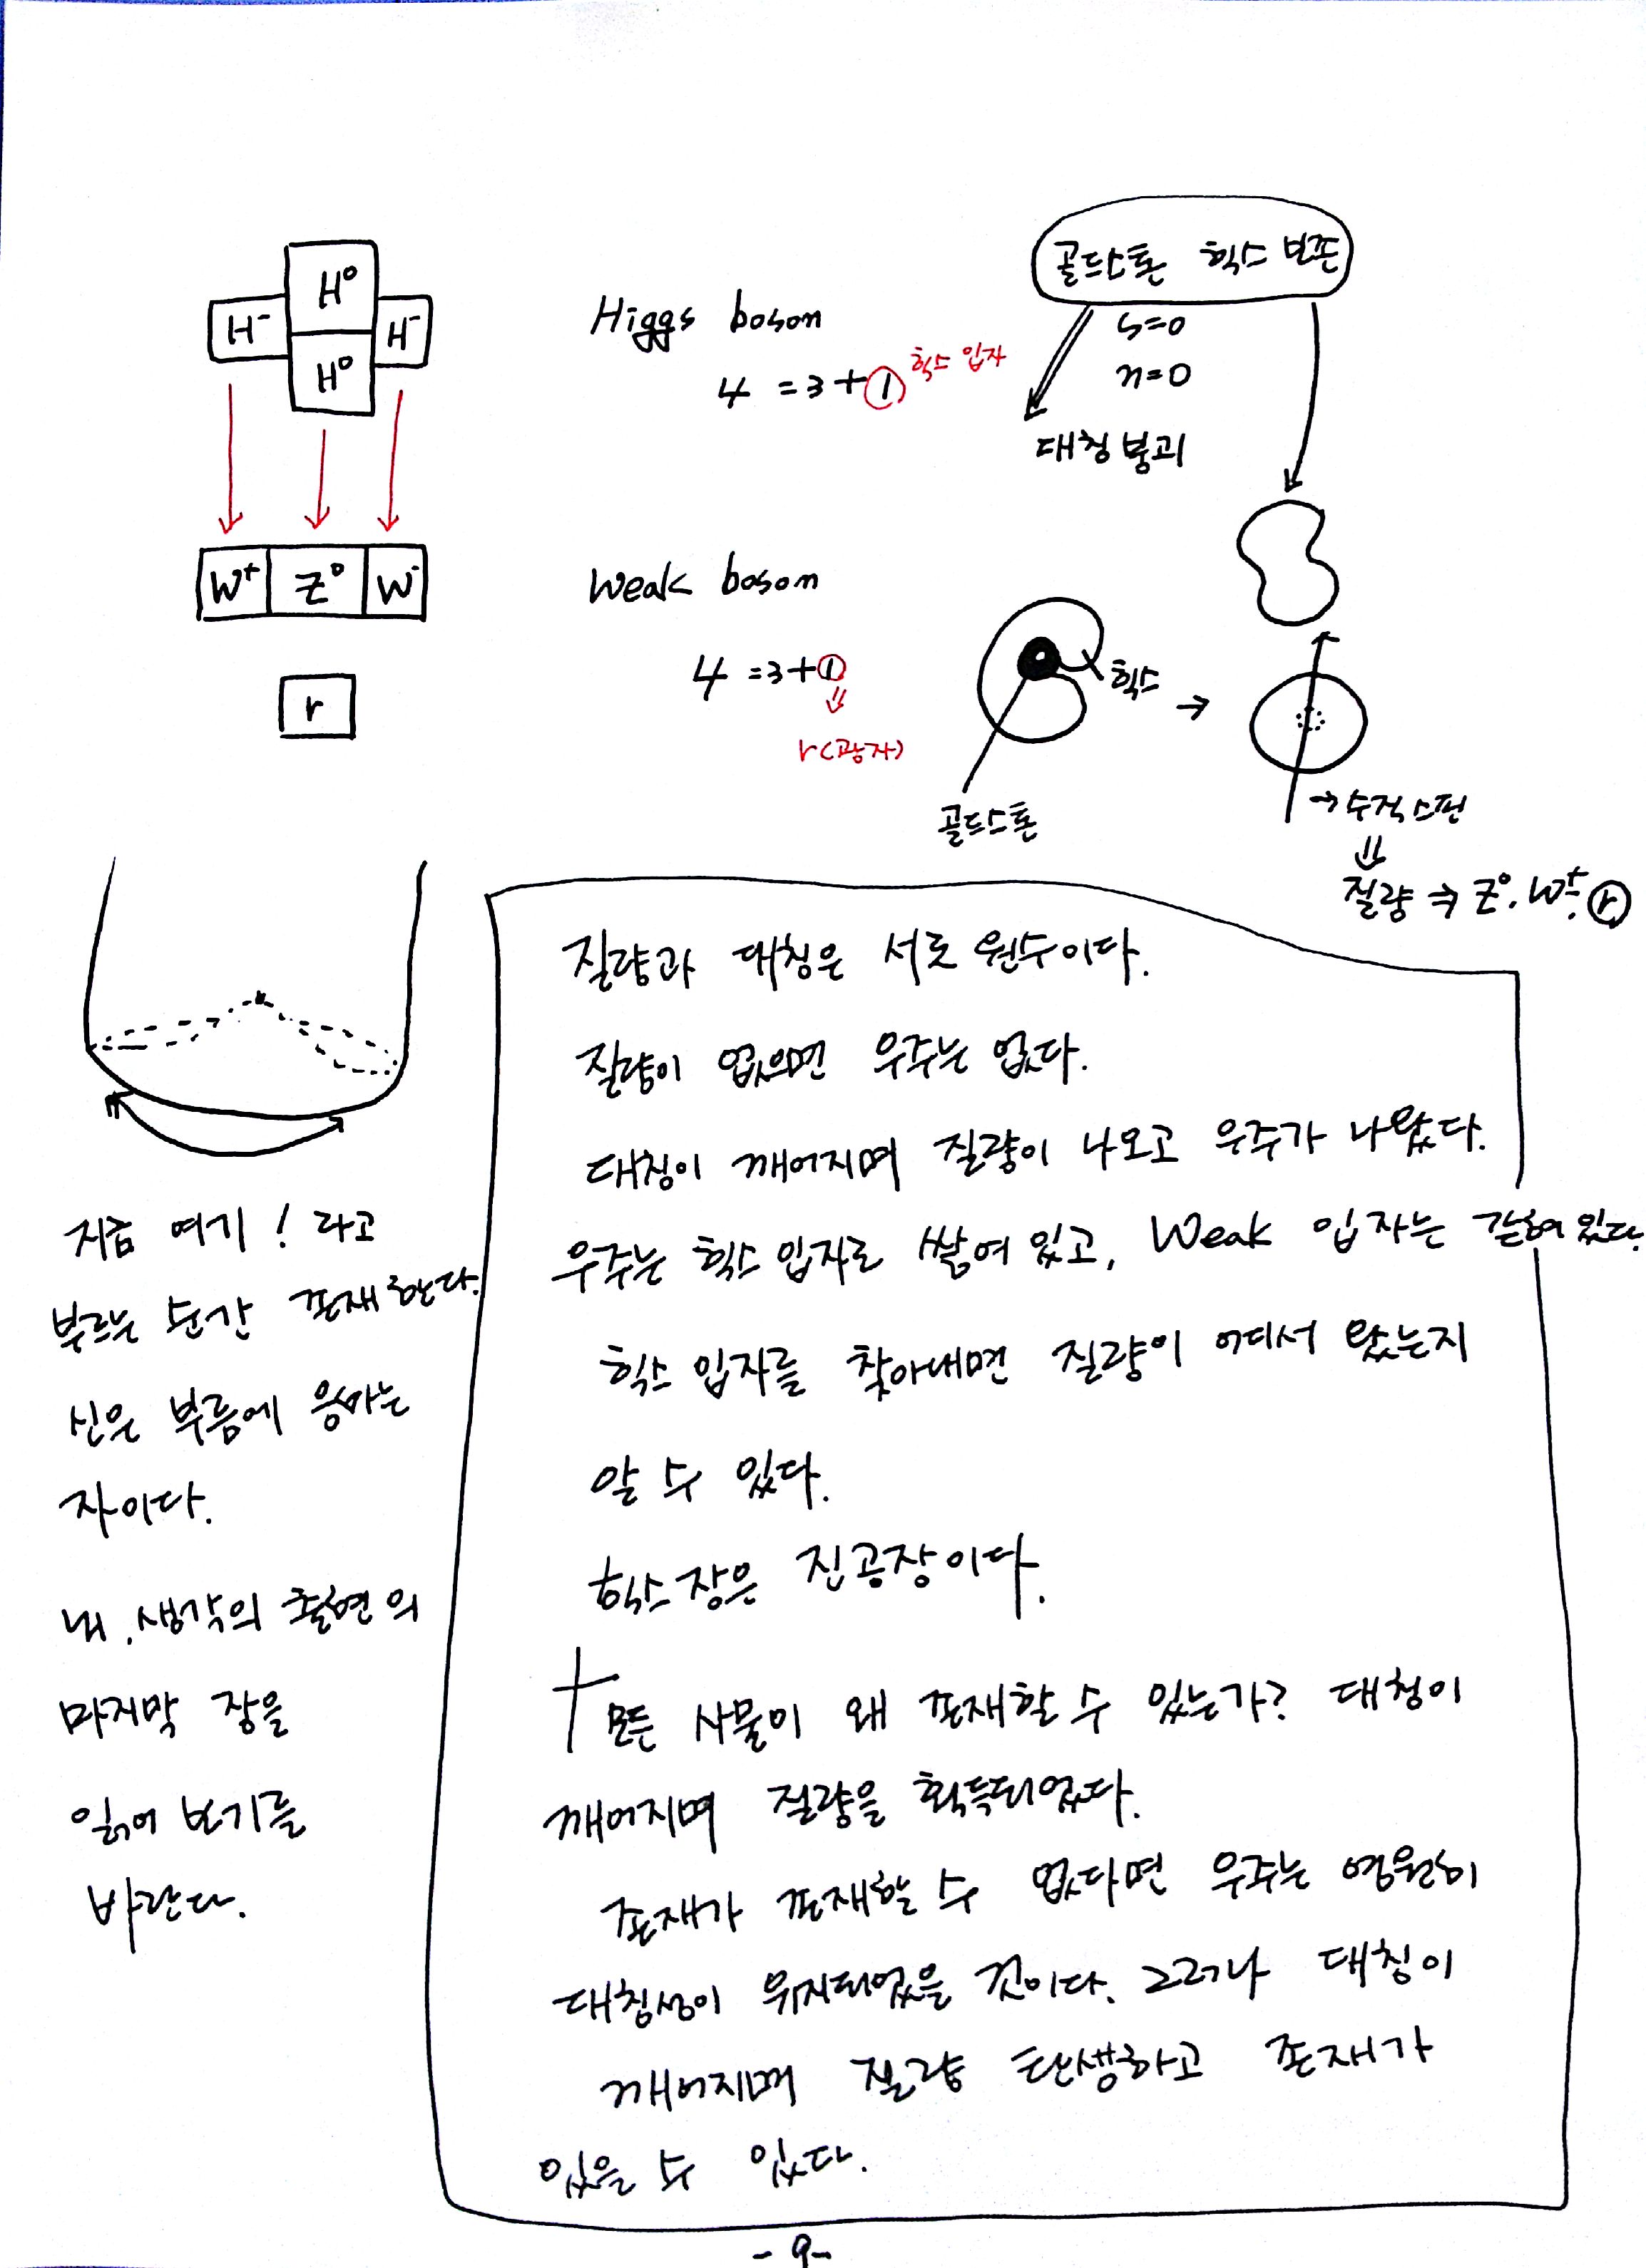 H⁰
H⁻
H⁻
H⁰
Higgs boson
4 = 3 + ① 힉스 입자
W⁺ Z⁰ W⁻
Weak boson
r
4 = 3 + ①
⇓
r(광자)
골드스톤 힉스 보존
s=0
n=0
대칭 붕괴
힉스
→
골드스톤
→ 수직스핀
⇓
질량 ⇒ Z⁰. W±. ⓡ
지금 여기! 라고
부르는 순간 존재한다.
신은 부름에 응하는
자이다.
내 생각의 출현의
마지막 장을
읽어 보기를
바란다.
질량과 대칭은 서로 원수이다.
질량이 없으면 우주는 없다.
대칭이 깨어지며 질량이 나오고 우주가 나왔다.
우주는 힉스 입자로 쌓여 있고, Weak 입자는 갇혀 있다.
힉스 입자를 찾아내면 질량이 어디서 왔는지
알 수 있다.
힉스장은 진공장이다.
모든 사물이 왜 존재할 수 있는가? 대칭이
깨어지며 질량을 획득되었다.
존재가 존재할 수 없다면 우주는 영원히
대칭성이 유지되었을 것이다. 그러나 대칭이
깨어지며 질량 탄생하고 존재가
있을 수 있다.
- 9 -